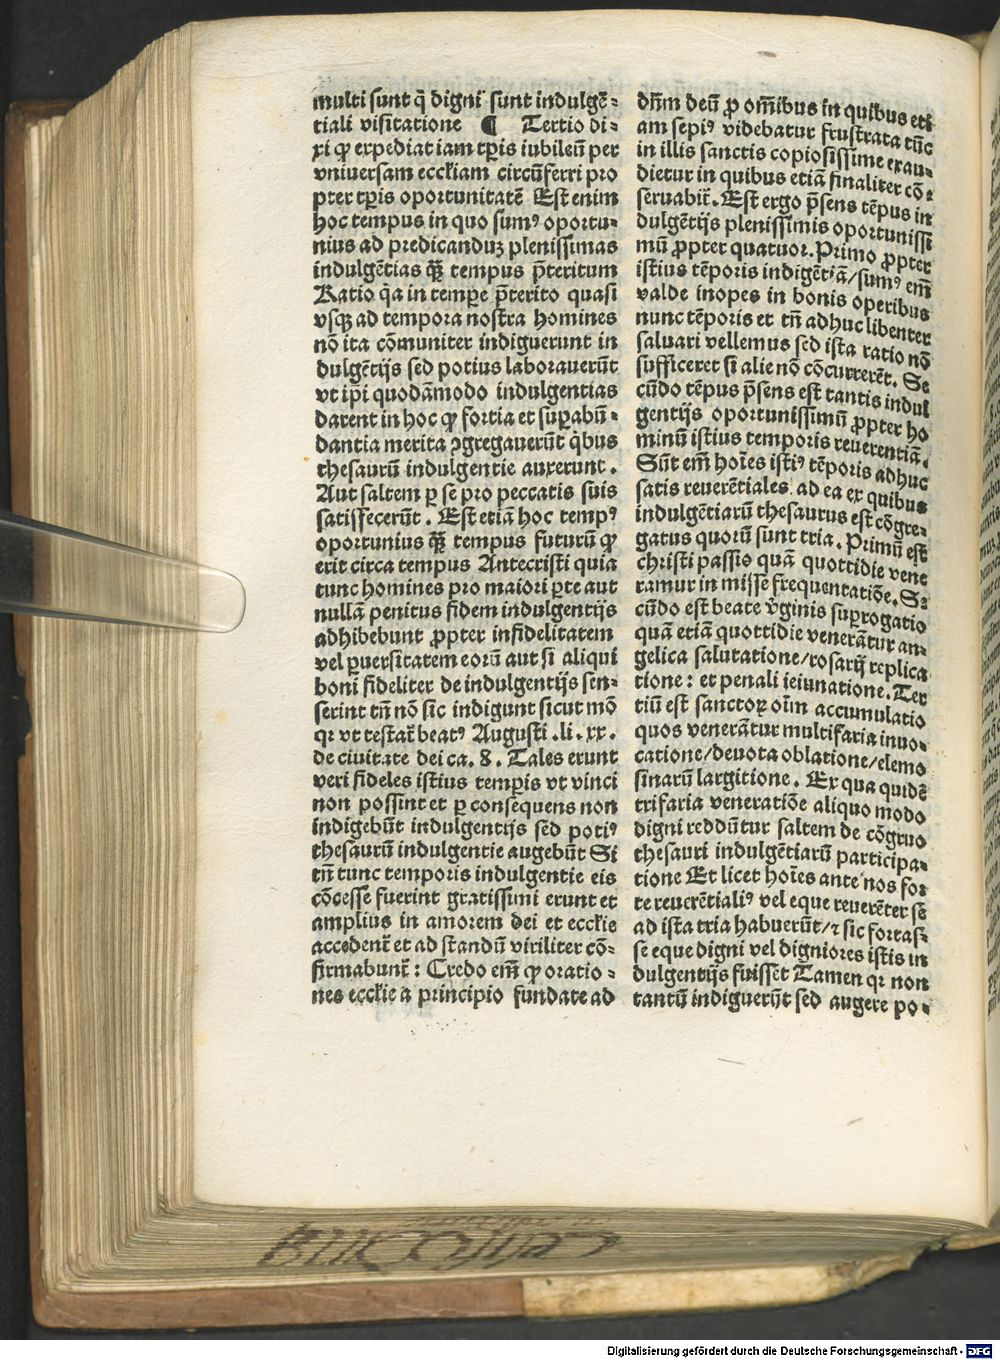 multi sunt q̄ digni sunt indulgē-
tiali visitatione ¶ Tertio di-
xi ꝙ expediat iam tp̄is iubileū per
vniuersam eccl̄iam circūferri pro
pter tp̄is oportunitatē Est enim
hoc tempus in quo sumꝰ oportu-
nius ad predicanduꝫ plenissimas
indulgētias qȝ tempus p̄teritum
Ratio q̄a in tempe p̄terito quasi
vsqȝ ad tempora nostra homines
nō ita cōmuniter indiguerunt in
dulgētijs sed potius laborauerūt
vt ip̄i quodāmodo indulgentias
darent in hoc ꝙ fortia et suꝑabū-
dantia merita ꝯgregauerūt q̄bus
thesaurū indulgentie auxerunt.
Aut saltem ꝑ se pro peccatis suis
satisfecerūt. Est etiā hoc tempꝰ
oportunius qȝ tempus futurū ꝙ
erit circa tempus Antecristi quia
tunc homines pro maiori ꝑte aut
nullā penitus fidem indulgentijs
adhibebunt ꝓpter infidelitatem
vel ꝑuersitatem eorū aut si aliqui
boni fideliter de indulgentijs sen-
serint tn̄ nō sic indigunt sicut mō
qꝛ vt testat̄ beatꝰ Augusti .li. xx.
de ciuitate dei ca. 8. Tales erunt
veri fideles istius temp̄is vt vinci
non possint et ꝑ consequens non
indigebūt indulgentijs sed potiꝰ
thesaurū indulgentie augebūt Si
tn̄ tunc temporis indulgentie eis
cōcesse fuerint gratissimi erunt et
amplius in amorem dei et eccl̄ie
accedent̄ et ad standū viriliter cō-
firmabunt̄: Credo em̄ ꝙ oratio-
nes eccl̄ie a principio fundate ad
dn̄m deū ꝓ om̄ibus in quibus eti
am sepiꝰ videbatur frustrata tūc
in illis sanctis copiosissime exau-
dietur in quibus etiā finaliter cō-
seruabit̄. Est ergo p̄sens tēpus in
dulgētijs plenissimis oportunissi
mū ꝓpter quatuor. Primo ꝓpter
istius tēporis indigētiā/sumꝰ em̄
valde inopes in bonis operibus
nunc tēporis et tn̄ adhuc libenter
saluari vellemus sed ista ratio nō
sufficeret si alie nō cōcurrerēt. Se
cūdo tēpus p̄sens est tantis indul
gentijs oportunissimū ꝓpter ho
minū istius temporis reuerentiā.
Sūt em̄ hoīes istiꝰ tēporis adhuc
satis reuerētiales ad ea ex quibus
indulgētiarū thesaurus est cōgre-
gatus quorū sunt tria. Primū est
christi passio quā quottidie vene
ramur in misse frequentatiōe. Se
cūdo est beate v̄ginis suꝑrogatio
quā etiā quottidie venerātur an-
gelica salutatione/rosarij replica
tione: et penali ieiunatione. Ter
tiū est sanctoꝝ oīm accumulatio
quos venerātur multifaria inuo-
catione/deuota oblatione/elemo
sinarū largitione. Ex qua quidē
trifaria veneratiōe aliquo modo
digni reddūtur saltem de cōgruo
thesauri indulgētiarū participa-
tione Et licet hoīes ante nos for
te reuerētialiꝰ vel eque reuerēter se
ad ista tria habuerūt/⁊ sic fortas-
se eque digni vel digniores istis in
dulgētijs fuissēt Tamen qꝛ non
tantū indiguerūt sed augere po-
Digitalisierung gefördert durch die Deutsche Forschungsgemeinschaft - DFG